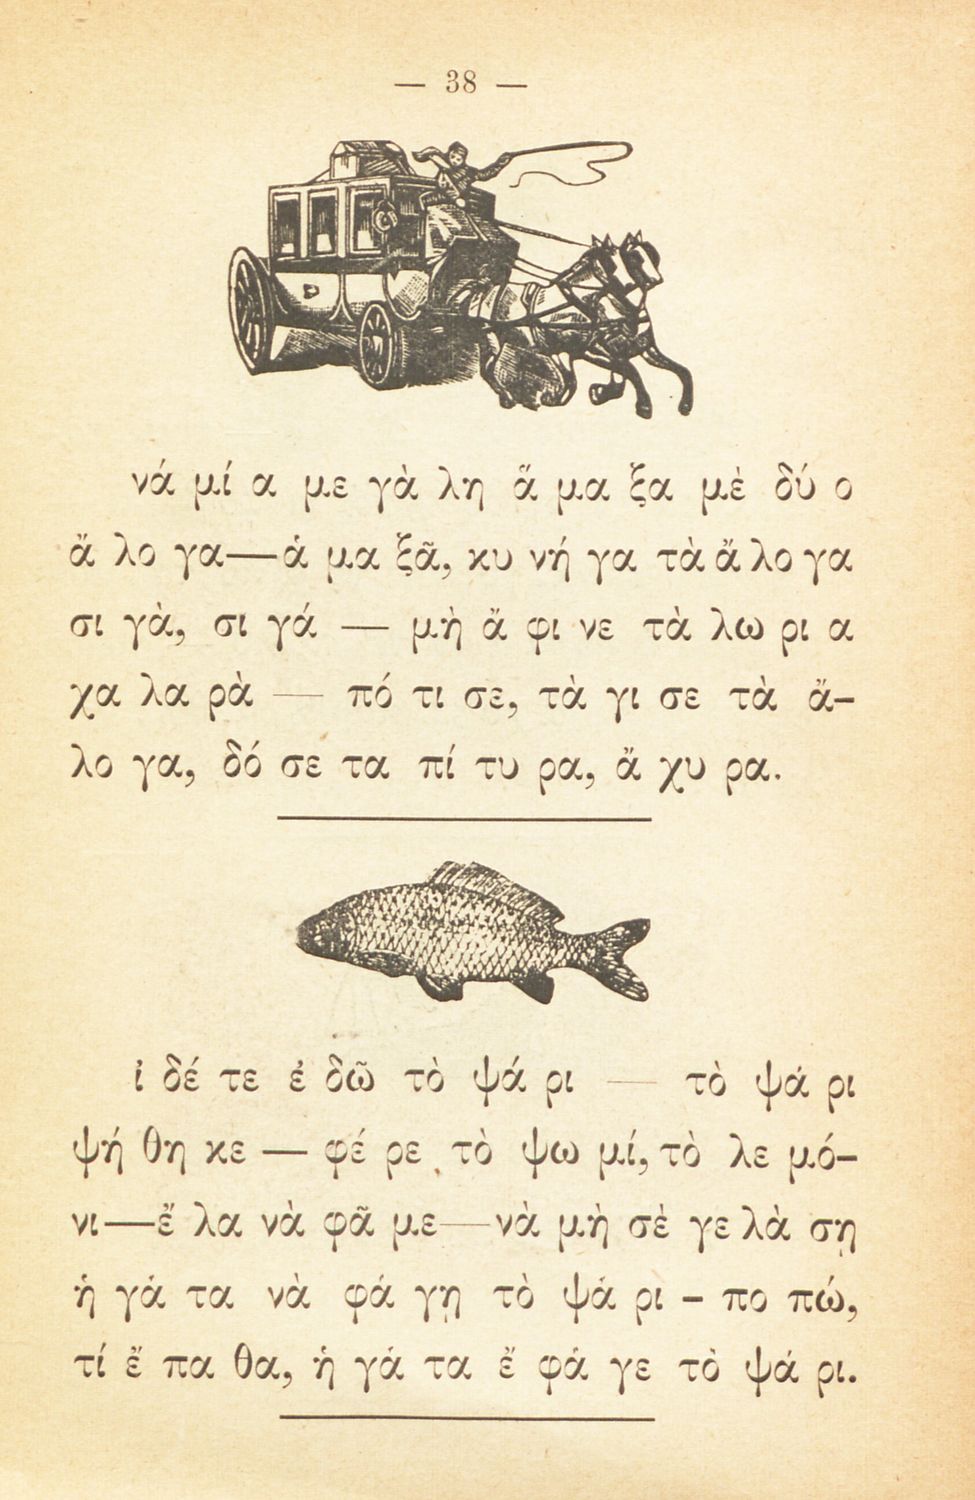 — 38 —
νά μί α με γὰ λη ἅ μα ξα μὲ δύ ο
ἄ λο γα—ἁ μα ξᾶ, κυ νή γα τὰ ἄ λο γα
σι γὰ, σι γά — μὴ ἄ φι νε τὰ λω ρι α
χα λα ρὰ — πό τι σε, τὰ γι σε τὰ ἄ-
λο γα, δό σε τα πί τυ ρα, ἄ χυ ρα.
ἰ δέ τε ἐ δῶ τὸ ψά ρι — τὸ ψά ρι
ψή θη κε — φέ ρε τὸ ψω μί, τὸ λε μό-
νι—ἔ λα νὰ φᾶ με—νὰ μὴ σὲ γε λὰ σῃ
ἡ γά τα νὰ φά γῃ τὸ ψά ρι - πο πώ,
τί ἔ πα θα, ἡ γά τα ἔ φά γε τὸ ψά ρι.